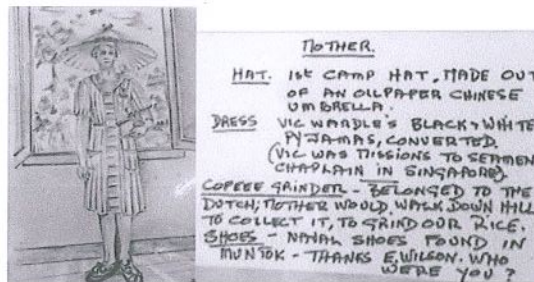 MOTHER.
HAT. 1st CAMP HAT, MADE OUT
OF AN OILPAPER CHINESE
UMBRELLA.
DRESS VIC WARDLE'S BLACK & WHITE
PYJAMAS, CONVERTED.
(VIC WAS MISSIONS TO SEAMEN
CHAPLAIN IN SINGAPORE).
COFFEE GRINDER - BELONGED TO THE
DUTCH; MOTHER WOULD WALK DOWN HILL
TO COLLECT IT, TO GRIND OUR RICE.
SHOES - NAVAL SHOES FOUND IN
MUNTOK - THANKS E. WILSON. WHO
WERE YOU?